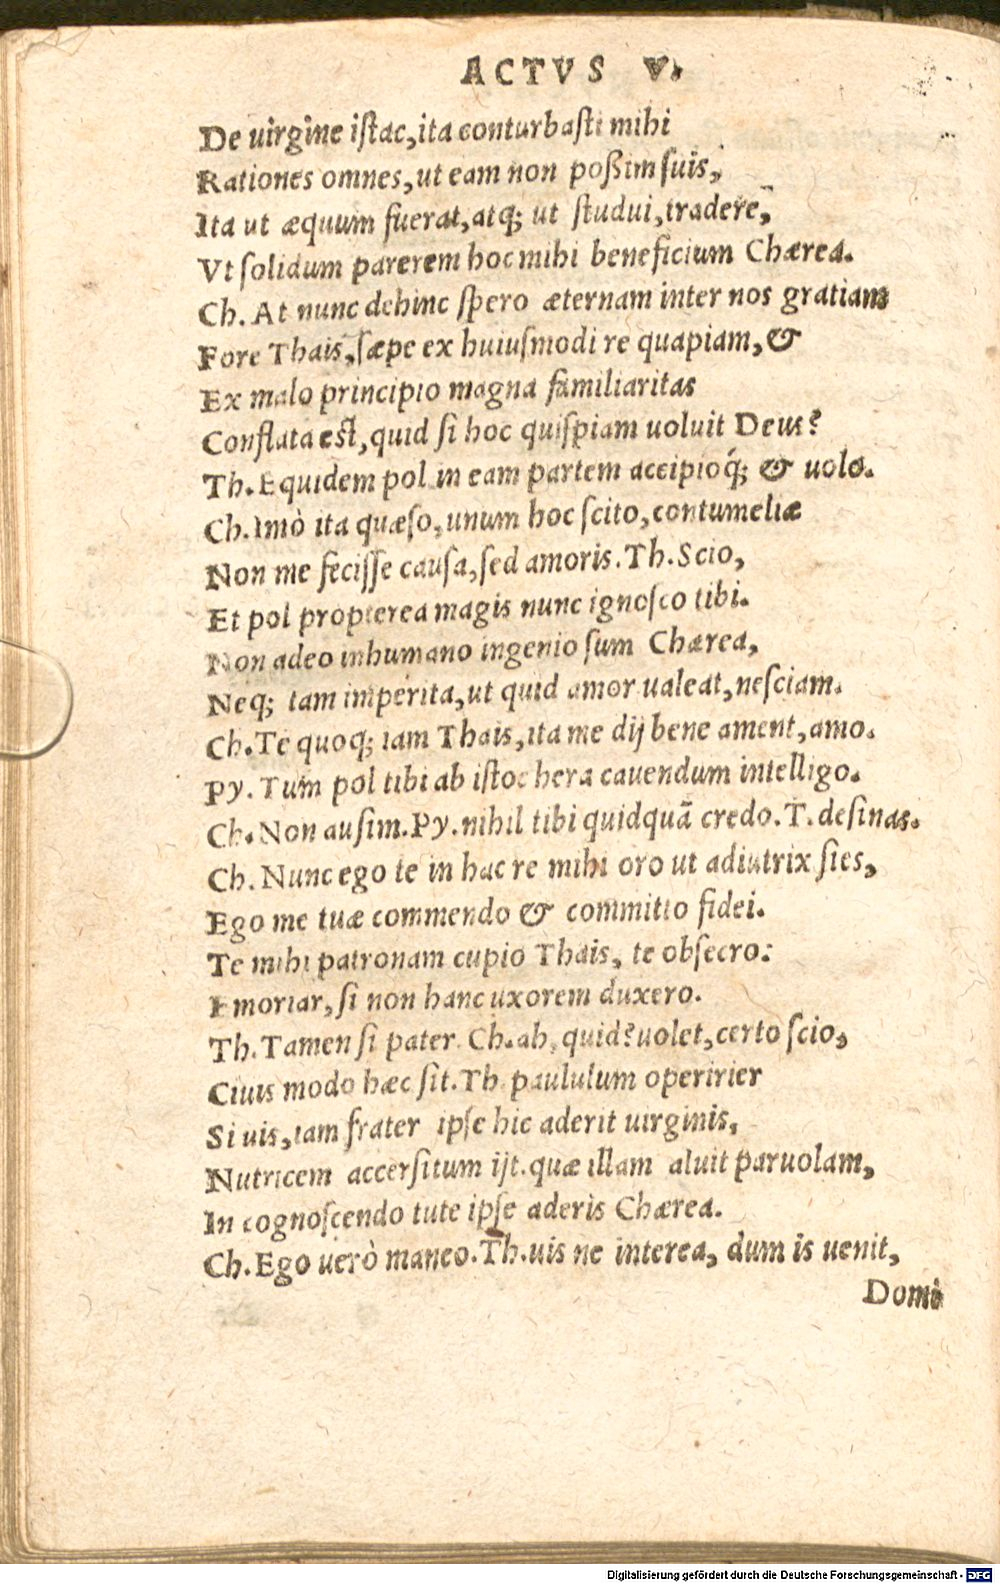 ACTVS V.
De uirgine iſtac, ita conturbaſti mihi
Rationes omnes, ut eam non poßim ſuis,
Ita ut æquum fuerat, atq; ut ſtudui, tradere,
Vt ſolidum parerem hoc mihi beneficium Chærea.
Ch. At nunc dehinc ſpero æternam inter nos gratiam
Fore Thais, ſæpe ex huiuſmodi re quapiam, &
Ex malo principio magna familiaritas
Conflata eſt, quid ſi hoc quiſpiam uoluit Deus?
Th. Equidem pol in eam partem accipioq́; & uolo.
Ch. Imò ita quæſo, unum hoc ſcito, contumeliæ
Non me feciſſe cauſa, ſed amoris. Th. Scio,
Et pol propterea magis nunc ignoſco tibi.
Non adeo inhumano ingenio ſum Chærea,
Neq; tam imperita, ut quid amor ualeat, neſciam.
Ch. Te quoq; iam Thais, ita me dij bene ament, amo.
Py. Tum pol tibi ab iſtoc hera cauendum intelligo.
Ch. Non auſim. Py. nihil tibi quidquã credo. T. deſinas.
Ch. Nunc ego te in hac re mihi oro ut adiutrix ſies,
Ego me tuæ commendo & committo fidei.
Te mihi patronam cupio Thais, te obſecro:
Emoriar, ſi non hanc uxorem duxero.
Th. Tamen ſi pater. Ch. ah, quid? uolet, certo ſcio,
Ciuis modo hæc ſit. Th. paululum operirier
Si uis, iam frater ipſe hic aderit uirginis,
Nutricem accerſitum ijt. quæ illam aluit paruolam,
In cognoſcendo tute ipſe aderis Chærea.
Ch. Ego uerò maneo. Th. uis ne interea, dum is uenit,
Domi
Digitalisierung gefördert durch die Deutsche Forschungsgemeinschaft - DFG